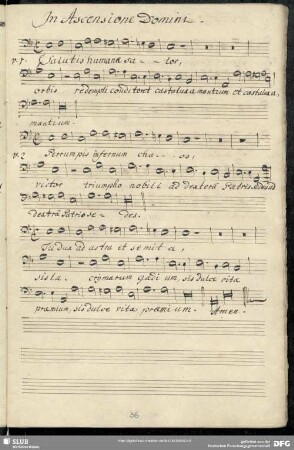 In Ascensione Domini.
V. 1. Salutis humanæ sator,
orbis redempti conditor et casta lux amantium et casta lux a,
mantium.
V. 2 Perrumpis infernum chaos,
victor triumpho nobili ad dextram Patris
dextra Patris sedes.
Tu dux ad astra et semita,
sis lacrymarum gaudium, sis dulce vita
præmium, sis dulce vita præmium. Amen.
36
SLUB
DFG